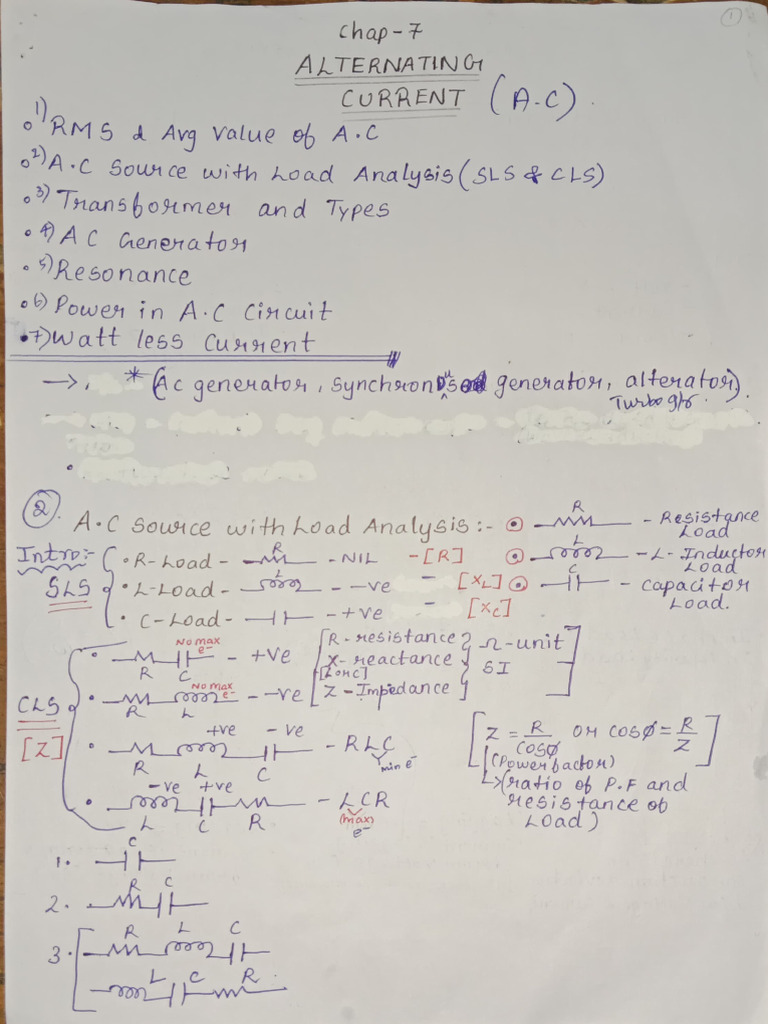 1
Chap-7
ALTERNATING
CURRENT (A.C).
1) RMS & Avg Value of A.C
2) A.C Source with Load Analysis (SLS & CLS)
3) Transformer and Types
4) AC Generator
5) Resonance
6) Power in A.C Circuit
7) Watt less Current
→ * (Ac generator, synchronous generator, alterator).
Turbo g/r.
2. A.C Source with Load Analysis :-
R - Resistance Load
L - L - Inductor Load
C - Capacitor Load.
Intro:-
SLS
• R-Load - R - NIL - [R]
• L-Load - L - -ve - [XL]
• C-Load - - +ve - [XC]
CLS
[Z]
• R C No max e- - +ve
• R L No max e- - -ve
[R - resistance
X - reactance
[L or C]
Z - Impedance
Ω - unit
SI]
• R L +ve C -ve - RLC min e-
• L -ve C +ve R - LCR (max) e-
[Z = R/COSØ or COSØ = R/Z]
(Power factor)
↳ (ratio of P.F and
resistance of
Load)
1. C
2. R C
3. R L C
L C R